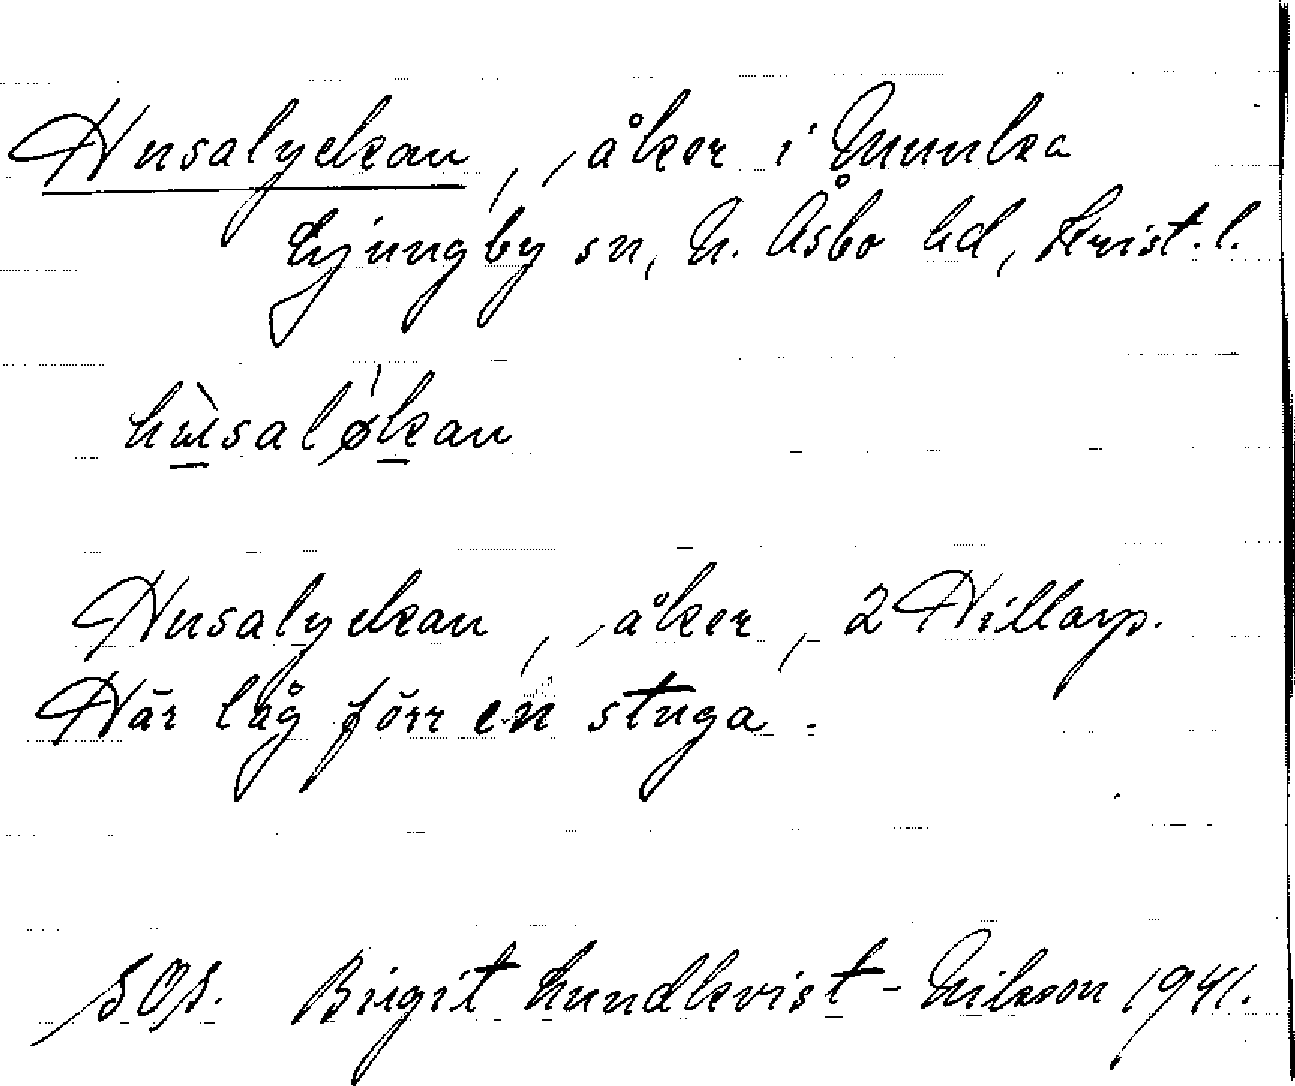 Husalyckan, åker i Munka
Ljungby sn, N. Åsbo hd, Krist. l.
hùsaløkan
Husalyckan, åker, 2 Hillarp.
Här låg förr en stuga.
SOS. Birgit Lundkvist-Nilsson 1941.